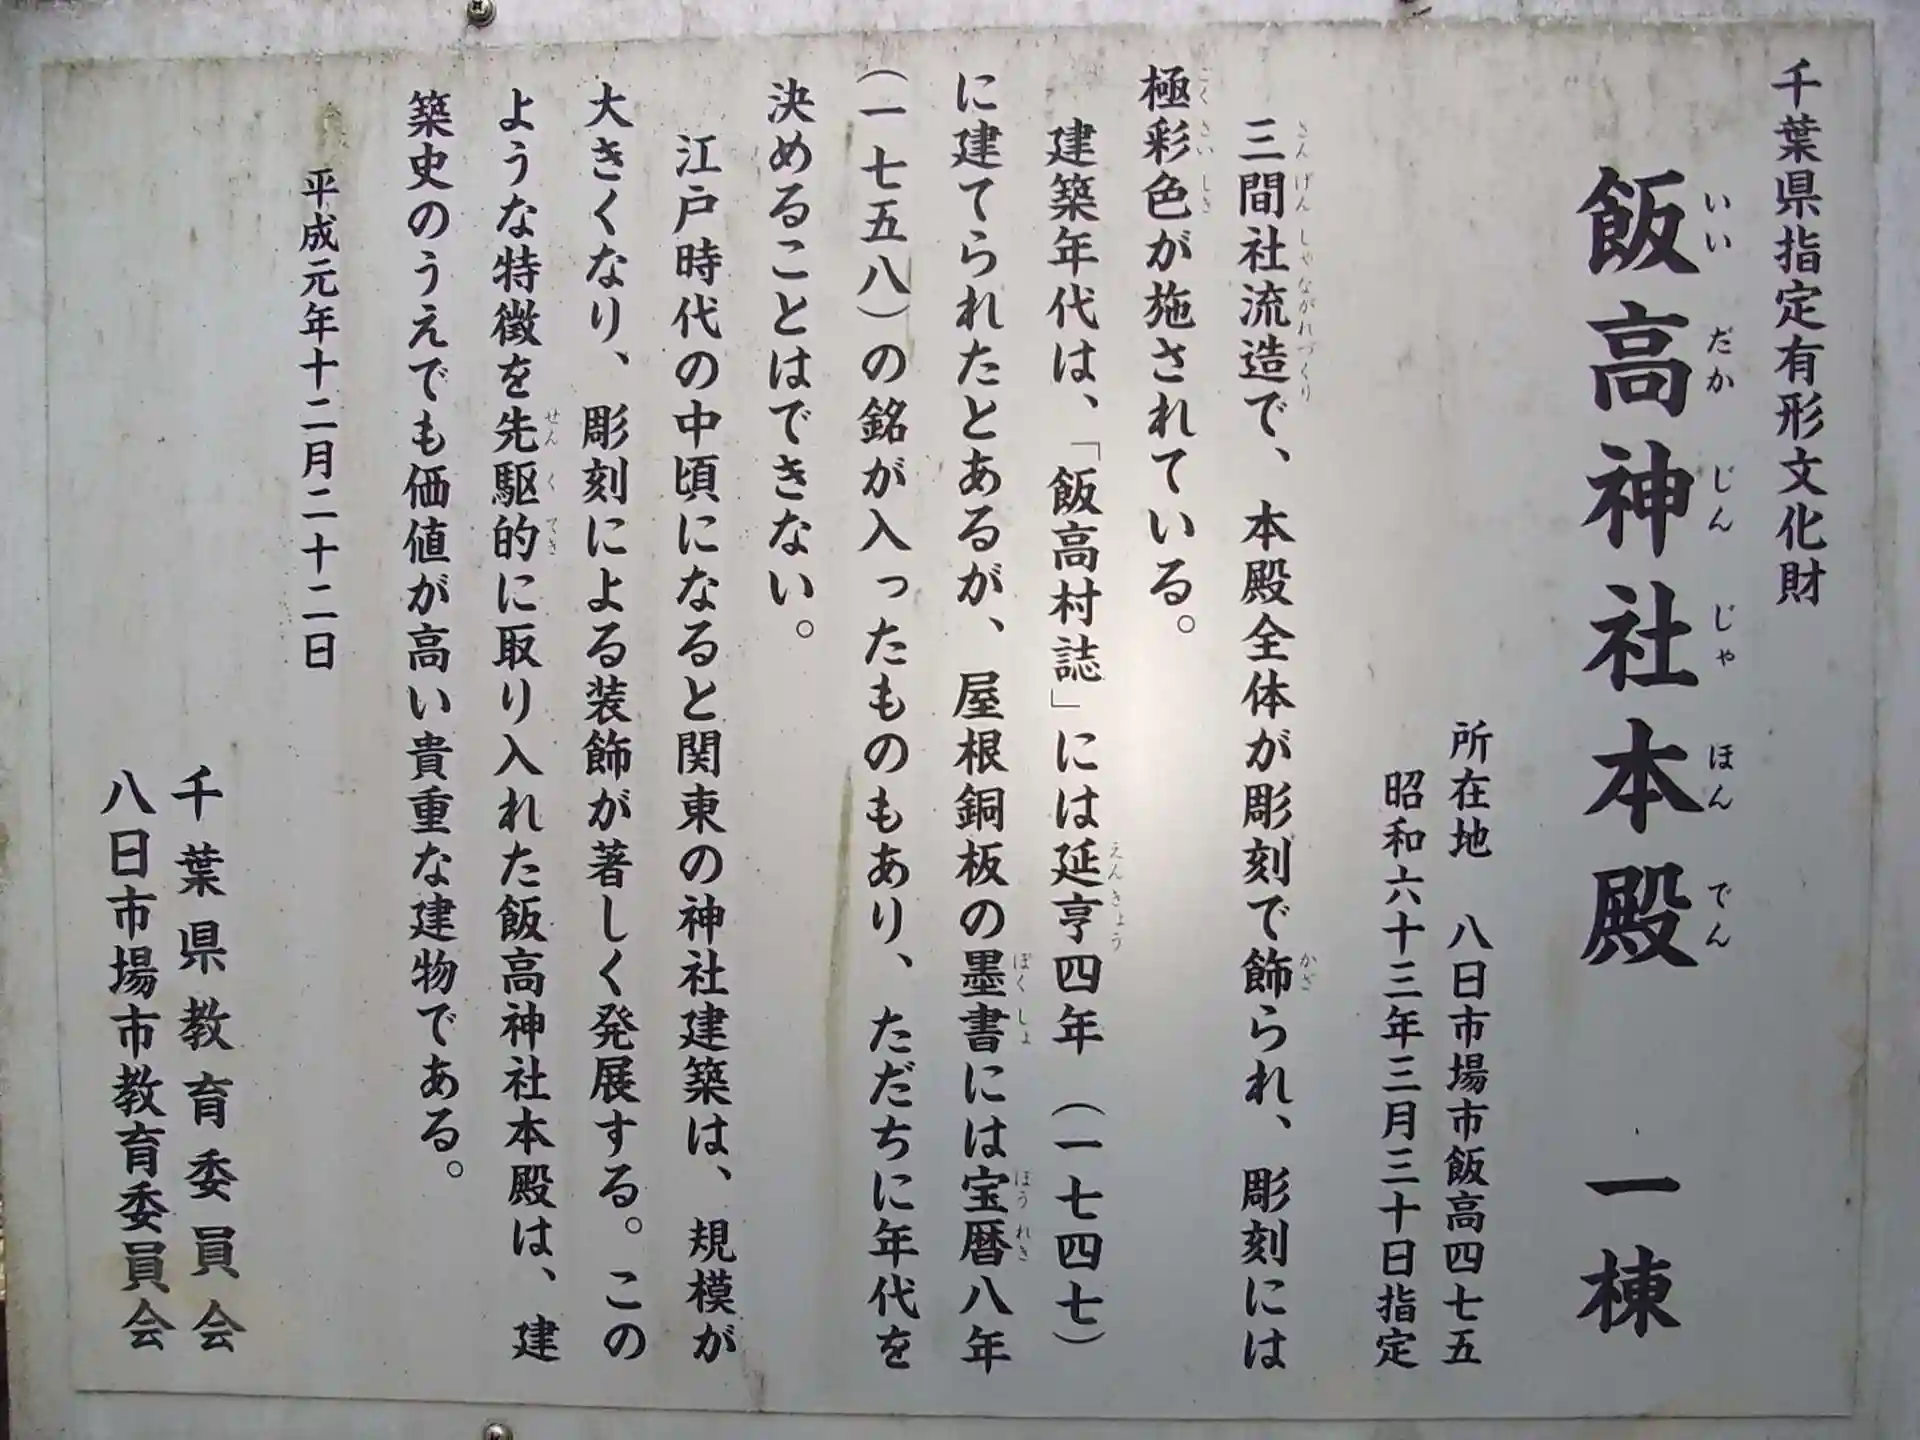 千葉県指定有形文化財
飯高神社本殿 一棟
いいだかじんじゃほんでん
所在地 八日市場市飯高四七五
昭和六十三年三月三十日指定
三間社流造で、本殿全体が彫刻で飾られ、彫刻には
さんげんしゃながれづくり かざ
極彩色が施されている。
ごくさいしき
建築年代は、「飯高村誌」には延亨四年(一七四七)
えんきょう
に建てられたとあるが、屋根銅板の墨書には宝暦八年
ぼくしょ ほうれき
(一七五八)の銘が入ったものもあり、ただちに年代を
決めることはできない。
江戸時代の中頃になると関東の神社建築は、規模が
大きくなり、彫刻による装飾が著しく発展する。この
ような特徴を先駆的に取り入れた飯高神社本殿は、建
せんくてき
築史のうえでも価値が高い貴重な建物である。
平成元年十二月二十二日
千葉県教育委員会
八日市場市教育委員会